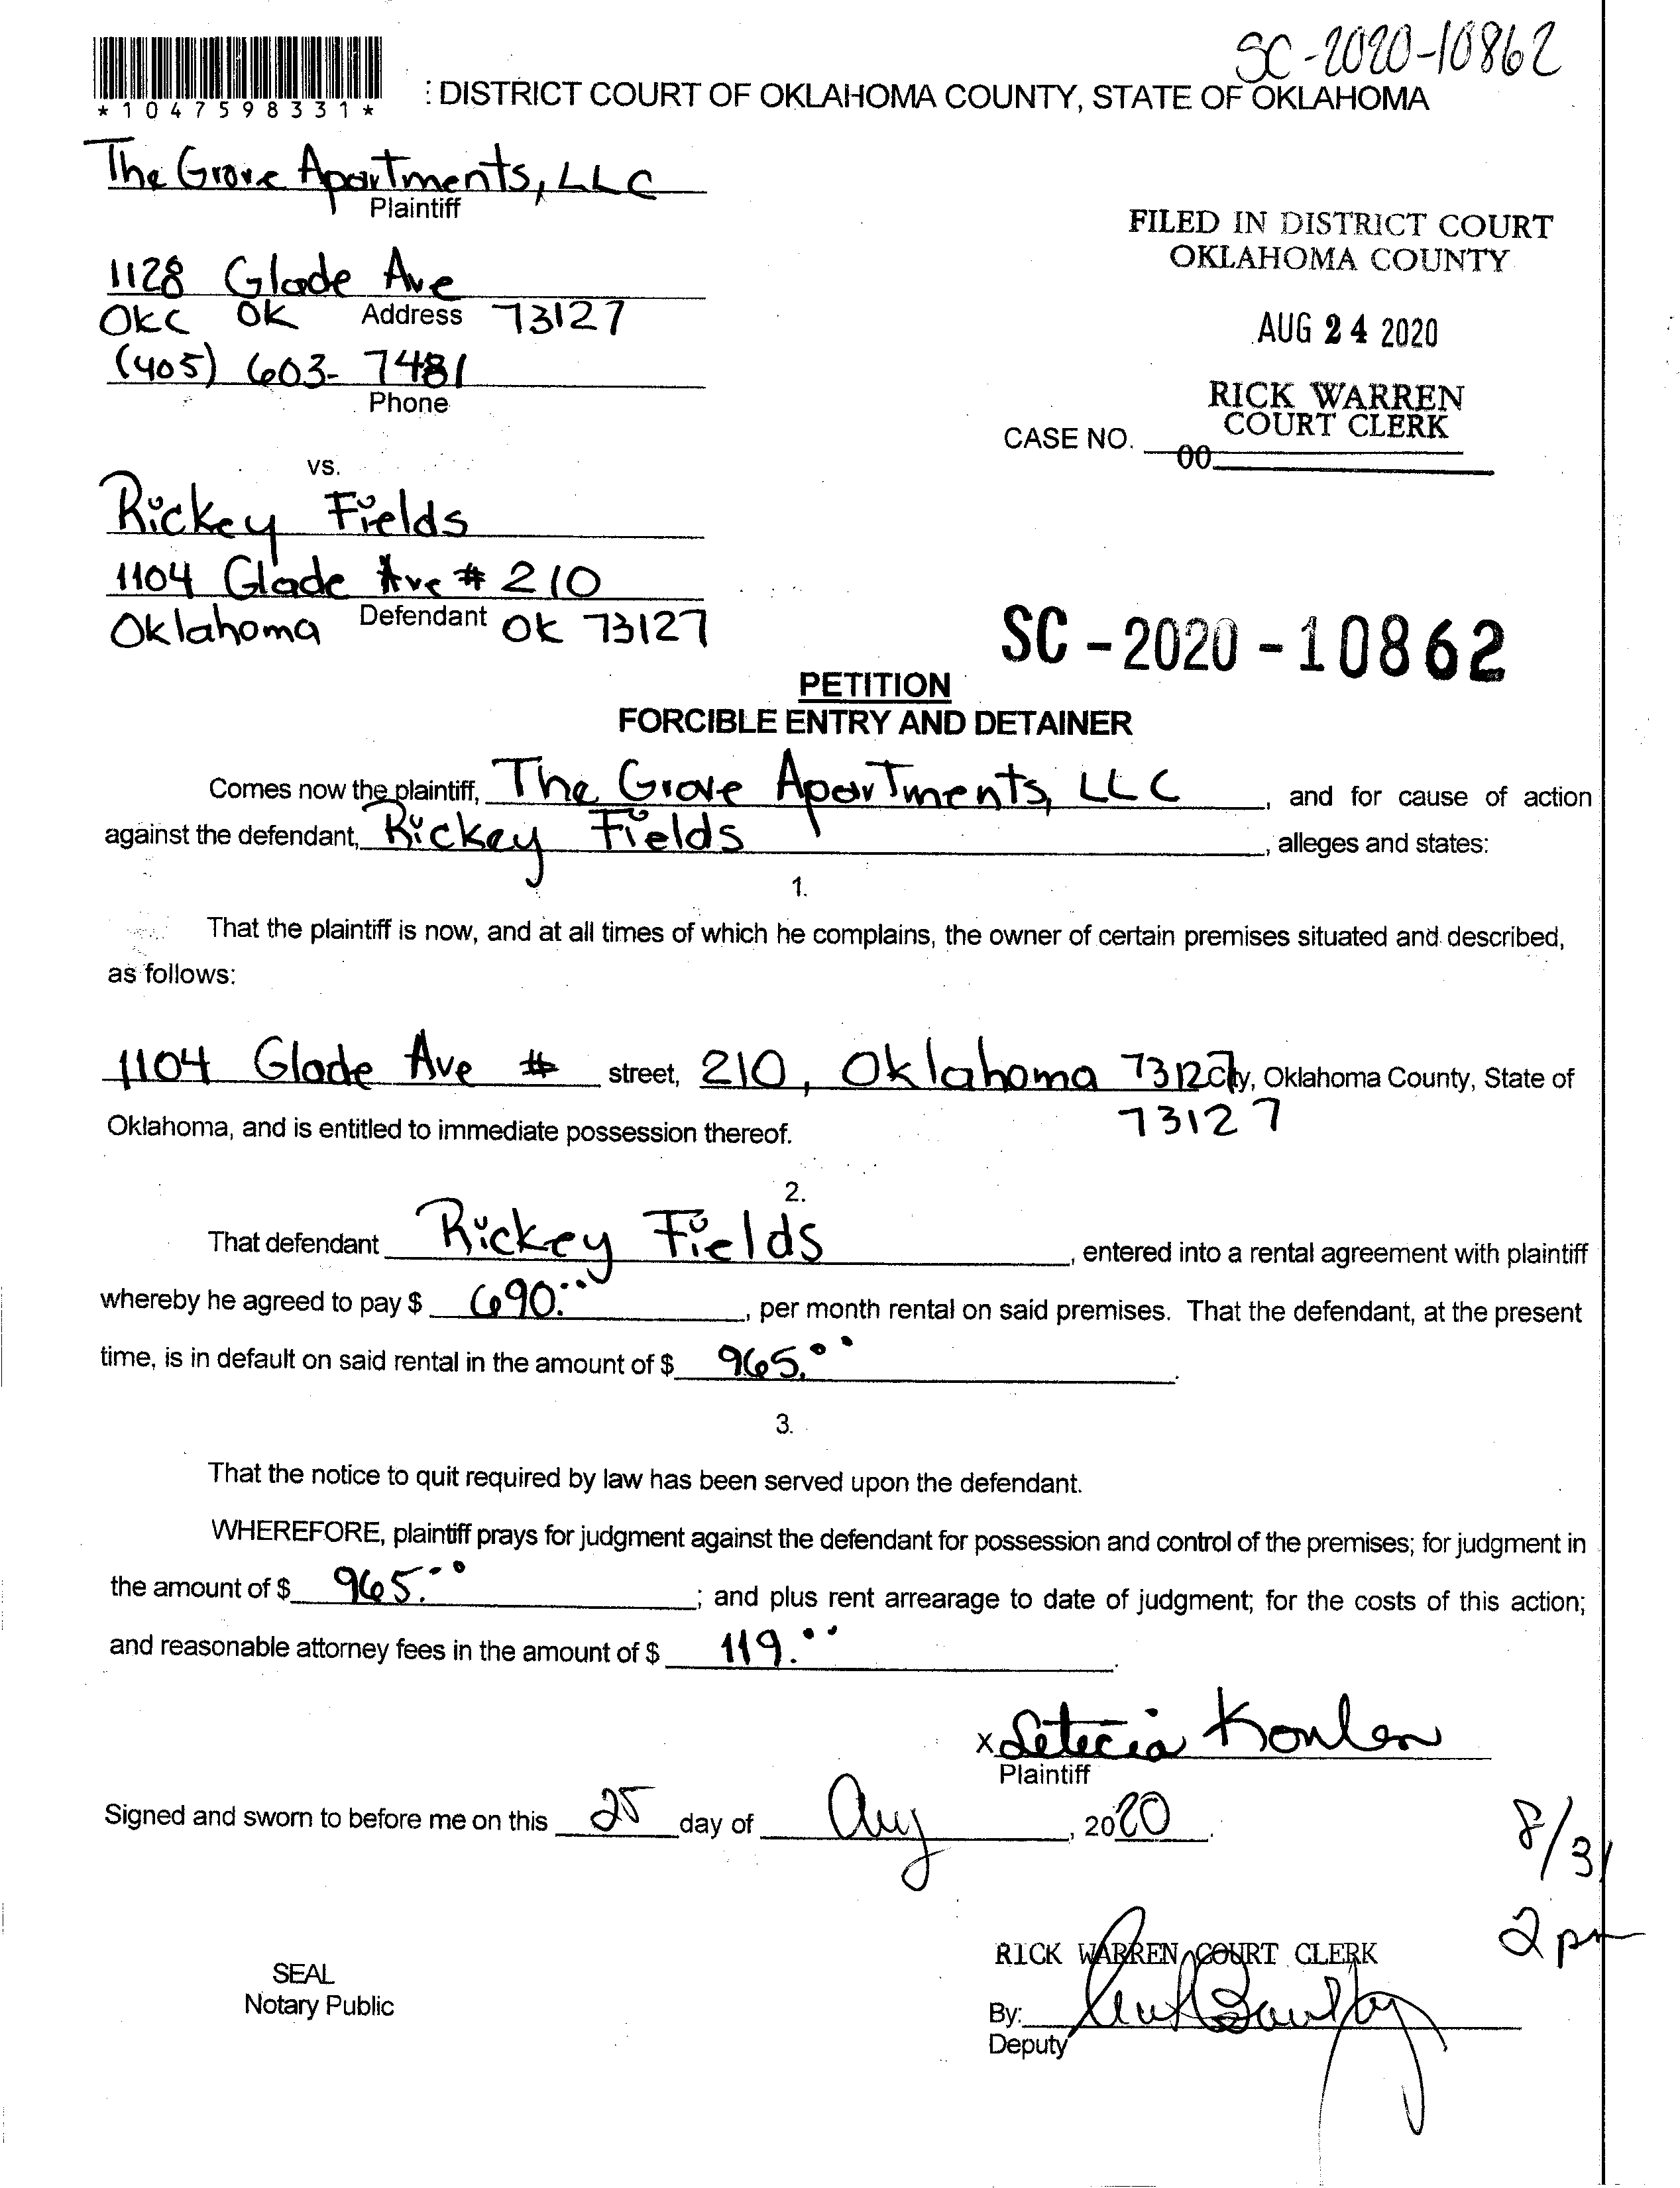 SC-2020-10862
*1047598331*
: DISTRICT COURT OF OKLAHOMA COUNTY, STATE OF OKLAHOMA
The Grove Apartments, LLC
Plaintiff
FILED IN DISTRICT COURT
OKLAHOMA COUNTY
1128 Glade Ave
OKC OK Address 73127
AUG 24 2020
(405) 603-7481
Phone
RICK WARREN
COURT CLERK
CASE NO. 00
vs.
Rickey Fields
1104 Glade Ave # 210
Oklahoma Defendant OK 73127
SC-2020-10862
PETITION
FORCIBLE ENTRY AND DETAINER
Comes now the plaintiff, The Grove Apartments, LLC, and for cause of action
against the defendant, Rickey Fields, alleges and states:
1.
That the plaintiff is now, and at all times of which he complains, the owner of certain premises situated and described,
as follows:
1104 Glade Ave # street, 210, Oklahoma 73127 City, Oklahoma County, State of
73127
Oklahoma, and is entitled to immediate possession thereof.
2.
That defendant Rickey Fields, entered into a rental agreement with plaintiff
whereby he agreed to pay $ 690.00, per month rental on said premises. That the defendant, at the present
time, is in default on said rental in the amount of $ 965.00.
3.
That the notice to quit required by law has been served upon the defendant.
WHEREFORE, plaintiff prays for judgment against the defendant for possession and control of the premises; for judgment in
the amount of $ 965.00; and plus rent arrearage to date of judgment; for the costs of this action;
and reasonable attorney fees in the amount of $ 119.00.
X Letecia
Plaintiff
Signed and sworn to before me on this 25 day of Aug, 2020.
8/31
2 pm
RICK WARREN COURT CLERK
SEAL
Notary Public
By:
Deputy